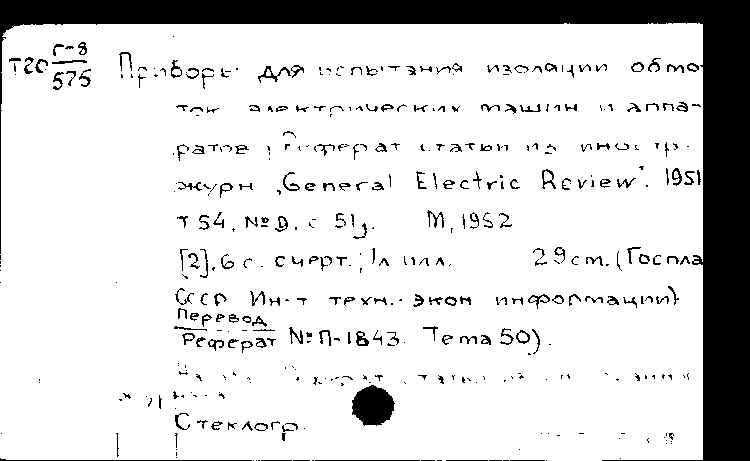 Т20 Г-8/575 Приборы для испытания изоляции обмо-
ток электрических машин и аппа-
ратов [Реферат статьи из иностр.
журн „General Electric Review". 1951
т 54, №9, с 51]. М, 1952
[2], 6 с. с черт.; 1л илл. 29 см. (Госпла
СССР Ин-т техн.-экон информации)
Перевод
Реферат № П-1843. Тема 50).
Реферат статьи
Стеклогр.